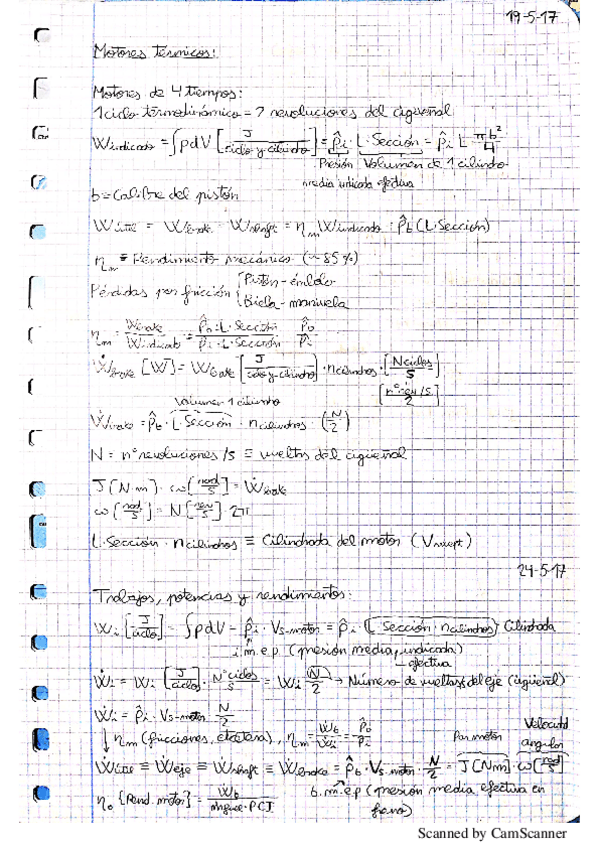 19-5-17
Motores térmicos:
Motores de 4 tiempos:
1 ciclo termodinámico = 2 revoluciones del cigüeñal
W indicado = ∫pdV [J / ciclo y cilindro] = p̂i · L · Sección = p̂i L πb²/4
Presión Volumen de 1 cilindro
media indicada efectiva
b = Calibre del pistón
W útil = W brake = W shaft = ηm W indicado = p̂b (L · Sección)
ηm ≡ Rendimiento mecánico (~85%)
Pérdidas por fricción { Pistón - émbolo
Biela - manivela
ηm = W brake / W indicado = p̂b · L · Sección / p̂i · L · Sección = p̂b / p̂i
Ẇ brake [W] = W brake [J / ciclo y cilindro] · n cilindros · [N ciclos / s]
[nº rev/s / 2]
Volumen 1 cilindro
Ẇ brake = p̂b · L · Sección · n cilindros · (N/2)
N = nº revoluciones /s ≡ vueltas del cigüeñal
J (N·m) · ω [rad/s] = Ẇ brake
ω [rad/s] = N [rev/s] · 2π
L · Sección · n cilindros ≡ Cilindrada del motor (V swept)
24-5-17
Trabajos, potencias y rendimientos:
Wi [J/ciclo] = ∫pdV = p̂i · Vs-motor = p̂i (L Sección n cilindros) Cilindrada
i.m.e.p (presión media indicada)
efectiva
Ẇi = Wi [J/ciclo] · Nº ciclos / s = Wi N/2 → Número de vueltas del eje (cigüeñal)
Ẇi = p̂i · Vs-motor N/2
↓ ηm (fricciones, etcétera), ηm = Ẇb/Ẇi = p̂b/p̂i
Par motor Velocidad angular
Ẇ útil ≡ Ẇ eje ≡ Ẇ shaft ≡ Ẇ brake = p̂b · Vs-motor · N/2 = J [Nm] · ω [rad/s]
b.m.e.p (presión media efectiva en
freno)
η0 {Rend. motor} = Ẇb / ṁfuel · PCI
Scanned by CamScanner